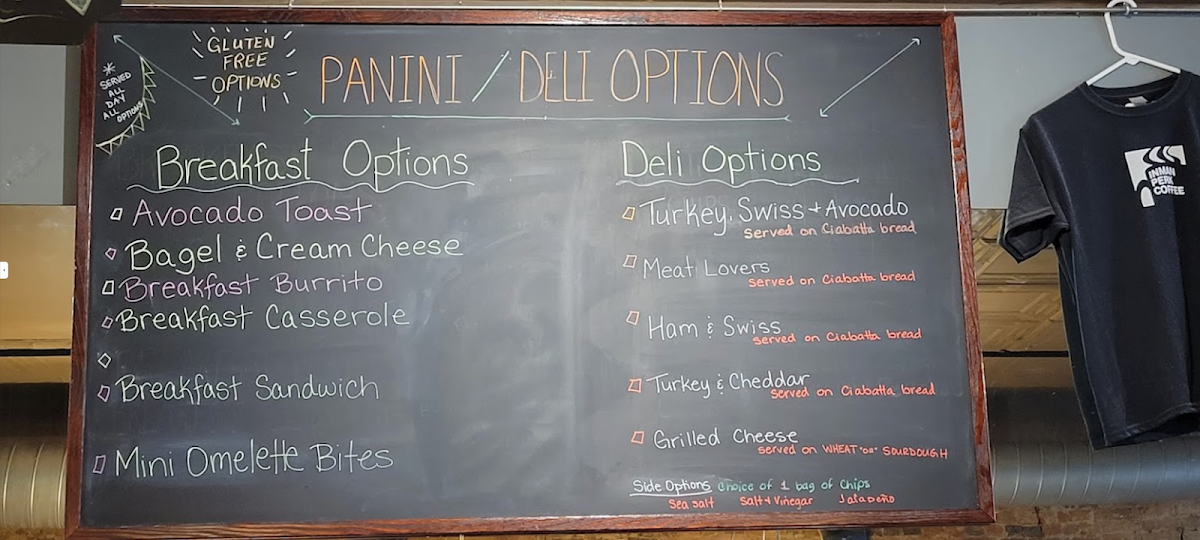 * SERVED
ALL
DAY
ALL OPTIONS
GLUTEN
FREE
OPTIONS
PANINI / DELI OPTIONS
Breakfast Options
Avocado Toast
Bagel & Cream Cheese
Breakfast Burrito
Breakfast Casserole
Breakfast Sandwich
Mini Omelette Bites
Deli Options
Turkey, Swiss + Avocado
served on Ciabatta bread
Meat Lovers
served on Ciabatta bread
Ham & Swiss
served on Ciabatta bread
Turkey & Cheddar
served on Ciabatta bread
Grilled Cheese
served on WHEAT "or" SOURDOUGH
Side Options Choice of 1 bag of Chips
Sea salt Salt & Vinegar Jalapeño
INMAN
PERK
COFFEE